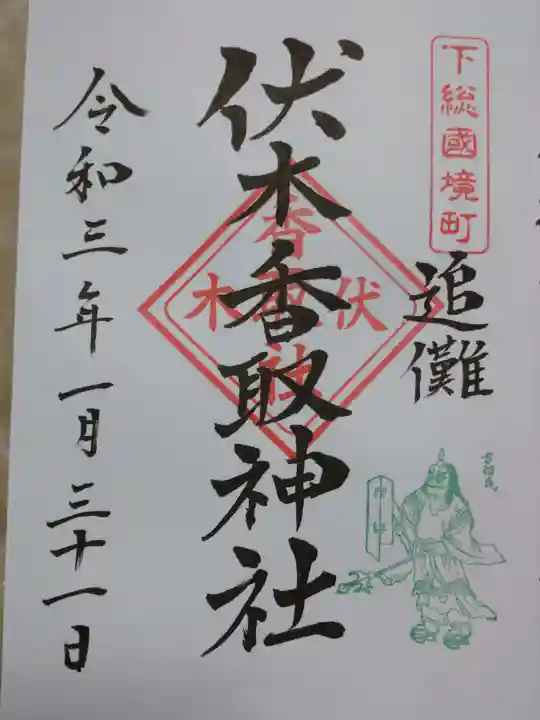 下総國境町
追儺
伏木香取神社
香取
伏木
社
令和三年一月三十一日